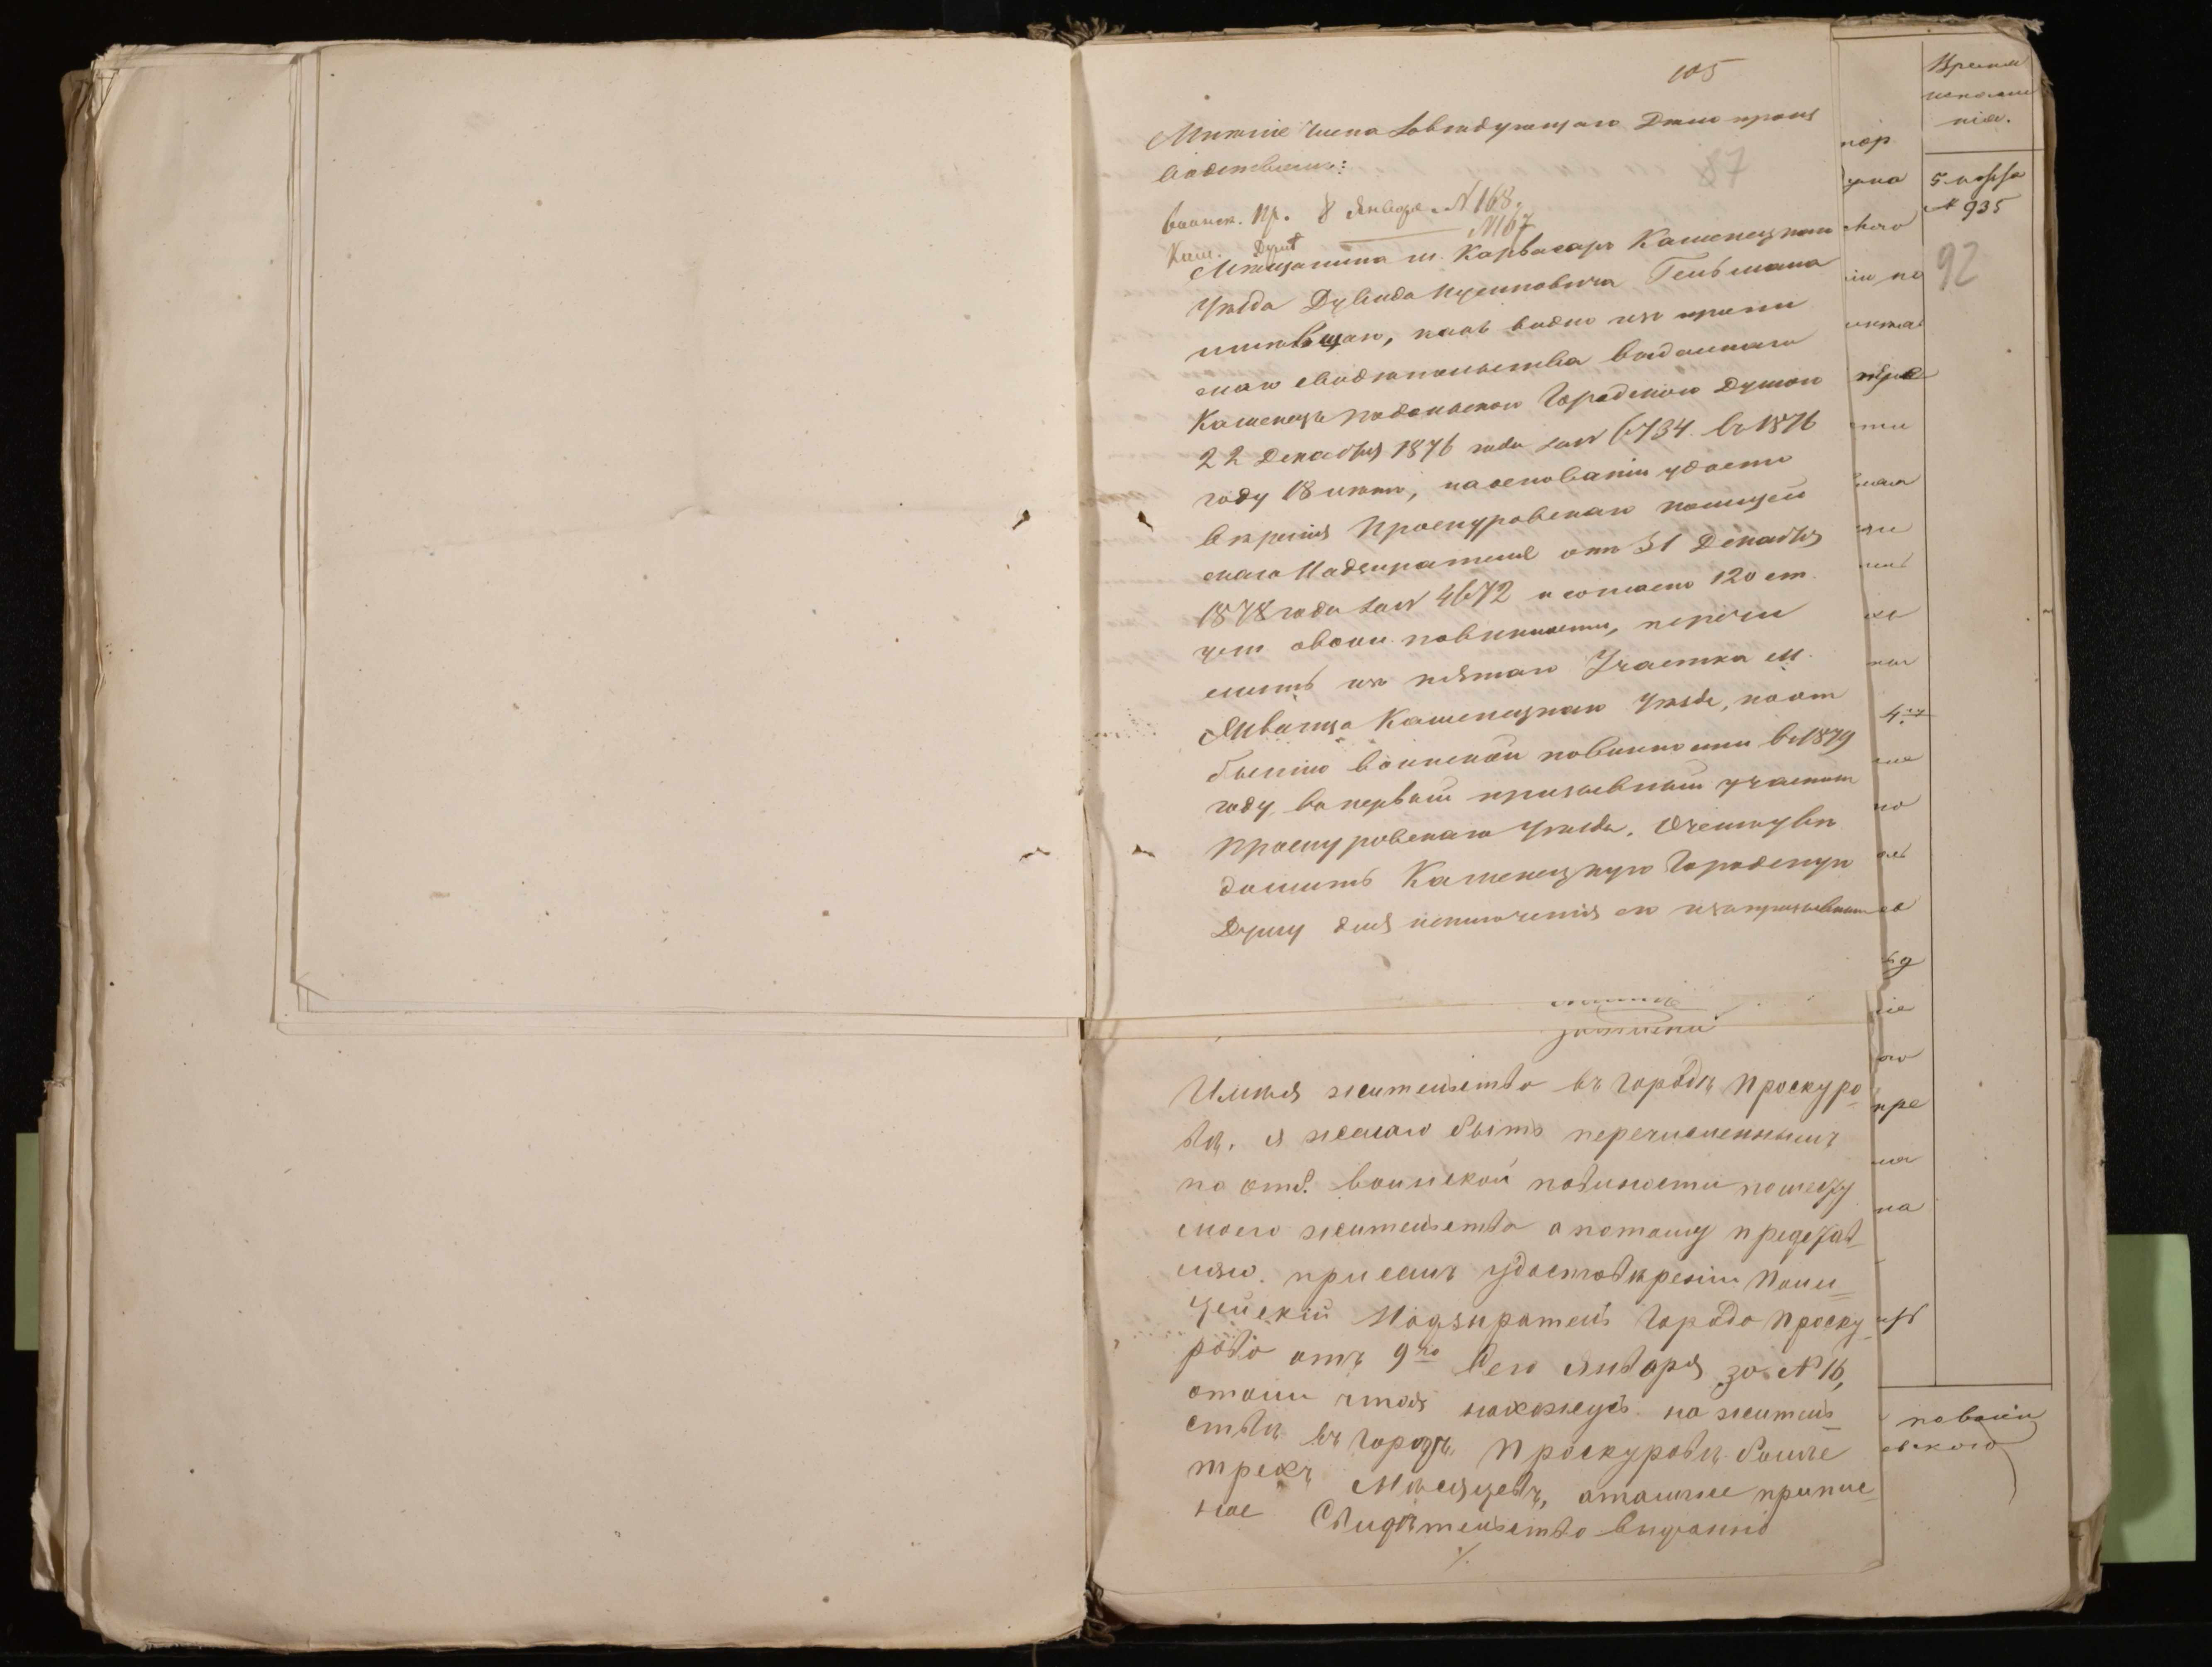 105
Мнѣніе Члена Завѣдующаго Дѣлопроиз
водствомъ:
87
воинск. Пр. 8 Января № 168.
Кам. Думѣ № 167
Мѣщанина м. Карвасаръ Каменецкаго
Уѣзда Дувида Гельмана
имѣвшаго, какъ видно изъ припи
снаго свидѣтельства выданнаго
Каменецъ Подольскою Городскою Думою
22 Декабря 1876 года за № 6734. въ 1876
году 18 лѣтъ, на основаніи удосто
вѣренія Проскуровскаго полицей
скаго Надзирателя отъ 31 Декабря
1878 года за № 4672 и согласно 120 ст.
уст. о воин. повинности, перечи
слить изъ пятаго Участка м.
Жванца Каменецкаго Уѣзда, по от
быванію воинской повинности въ 1879
году, въ первый призывный участокъ
Проскуровскаго Уѣзда. О чемъ увѣ
домить Каменецкую Городскую
Думу для исключенія его изъ призывныхъ
Имѣя жительство въ городѣ Проскуро
вѣ, я желаю быть перечисленнымъ
по отб. воинской повиности по мѣсту
моего жительства а потому представ
ляю при семъ удостовѣреніи Поли
цейскій Надзиратель города Проску
рова отъ 9го сего Января за № 16,
о томъ что я нахожусь на житель
ствѣ въ городѣ Проскуровѣ болѣе
трехъ Мѣсяцевъ, а также припис
ное Свидѣтельство выданно
./.
Время
исполне
нія.
5 марта
№ 935
92